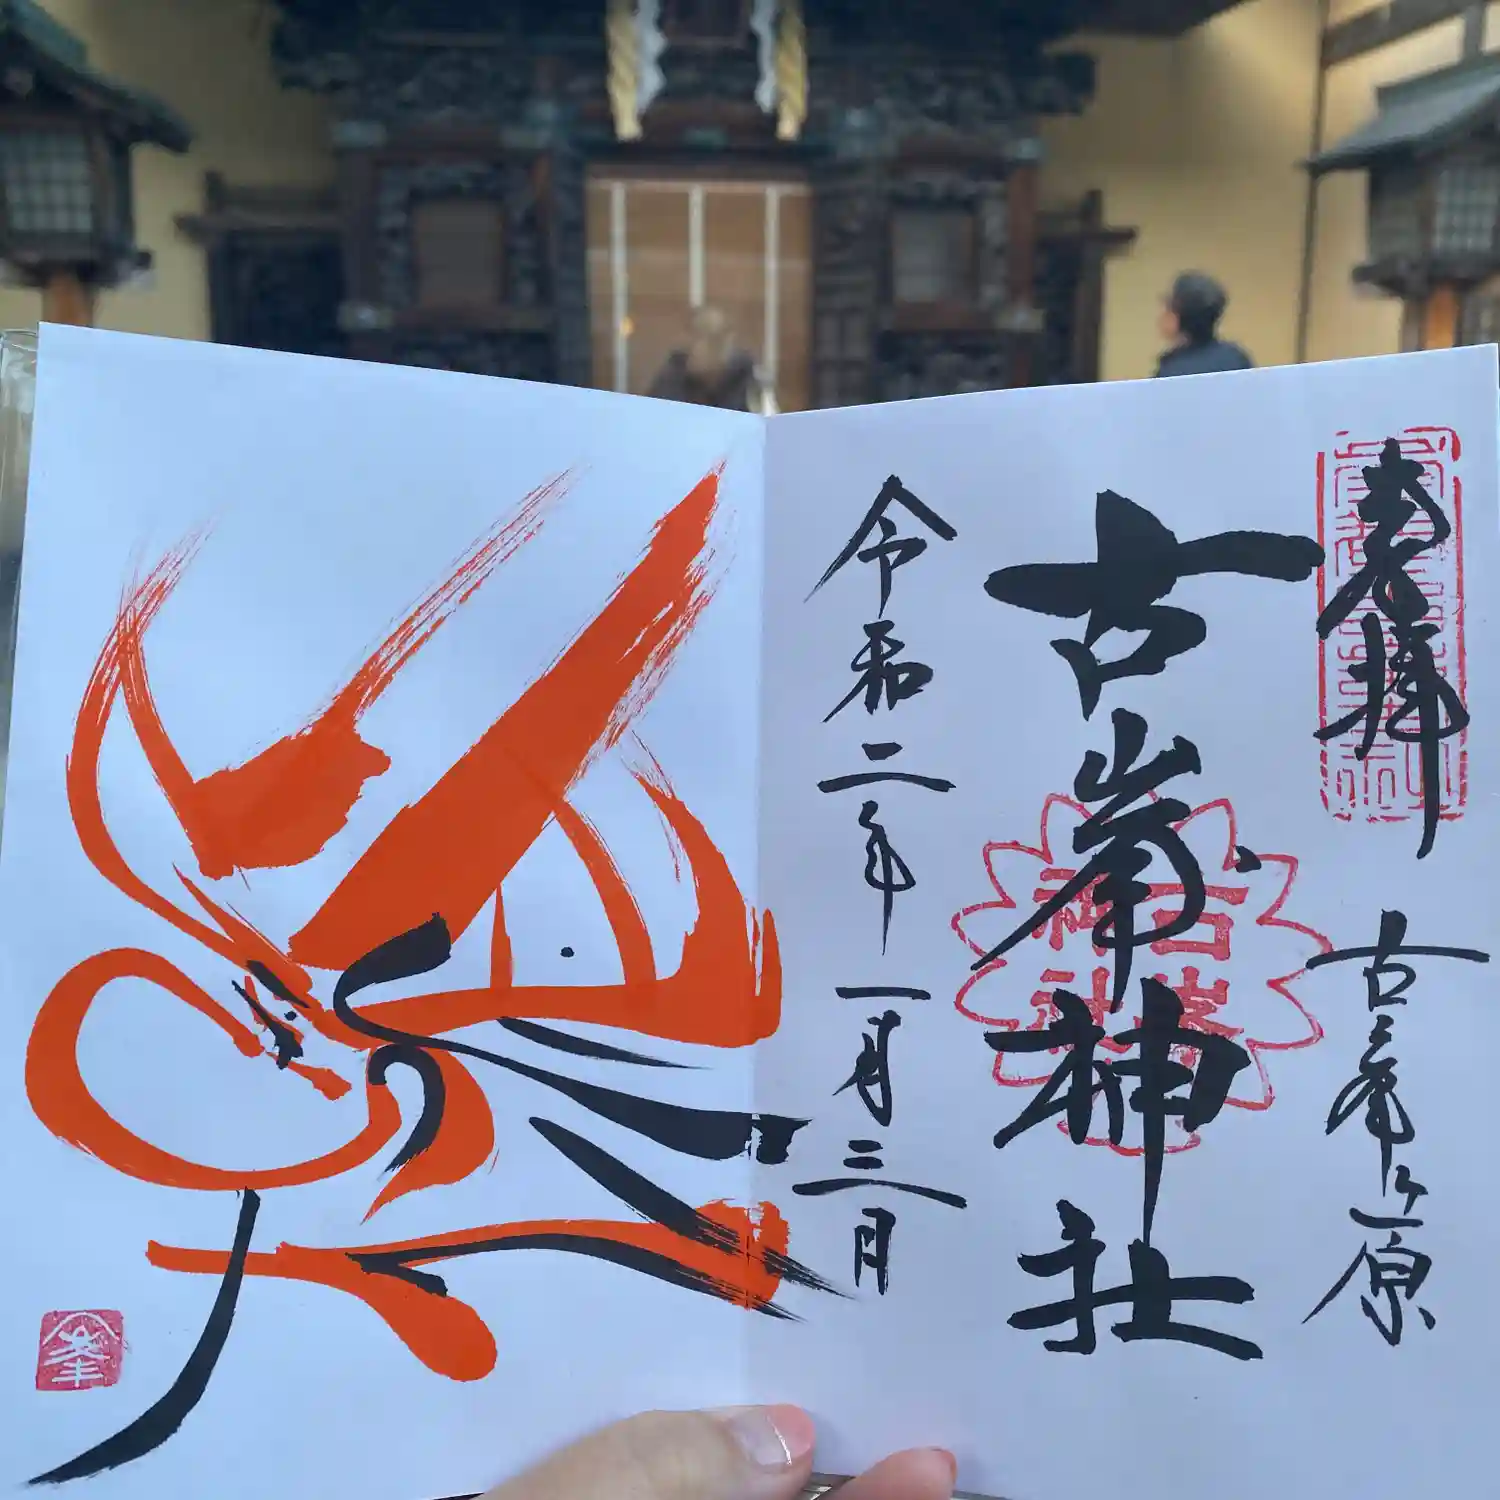 奉拝
古峯ヶ原
古峯神社
古峯神社
令和二年一月三日
峯